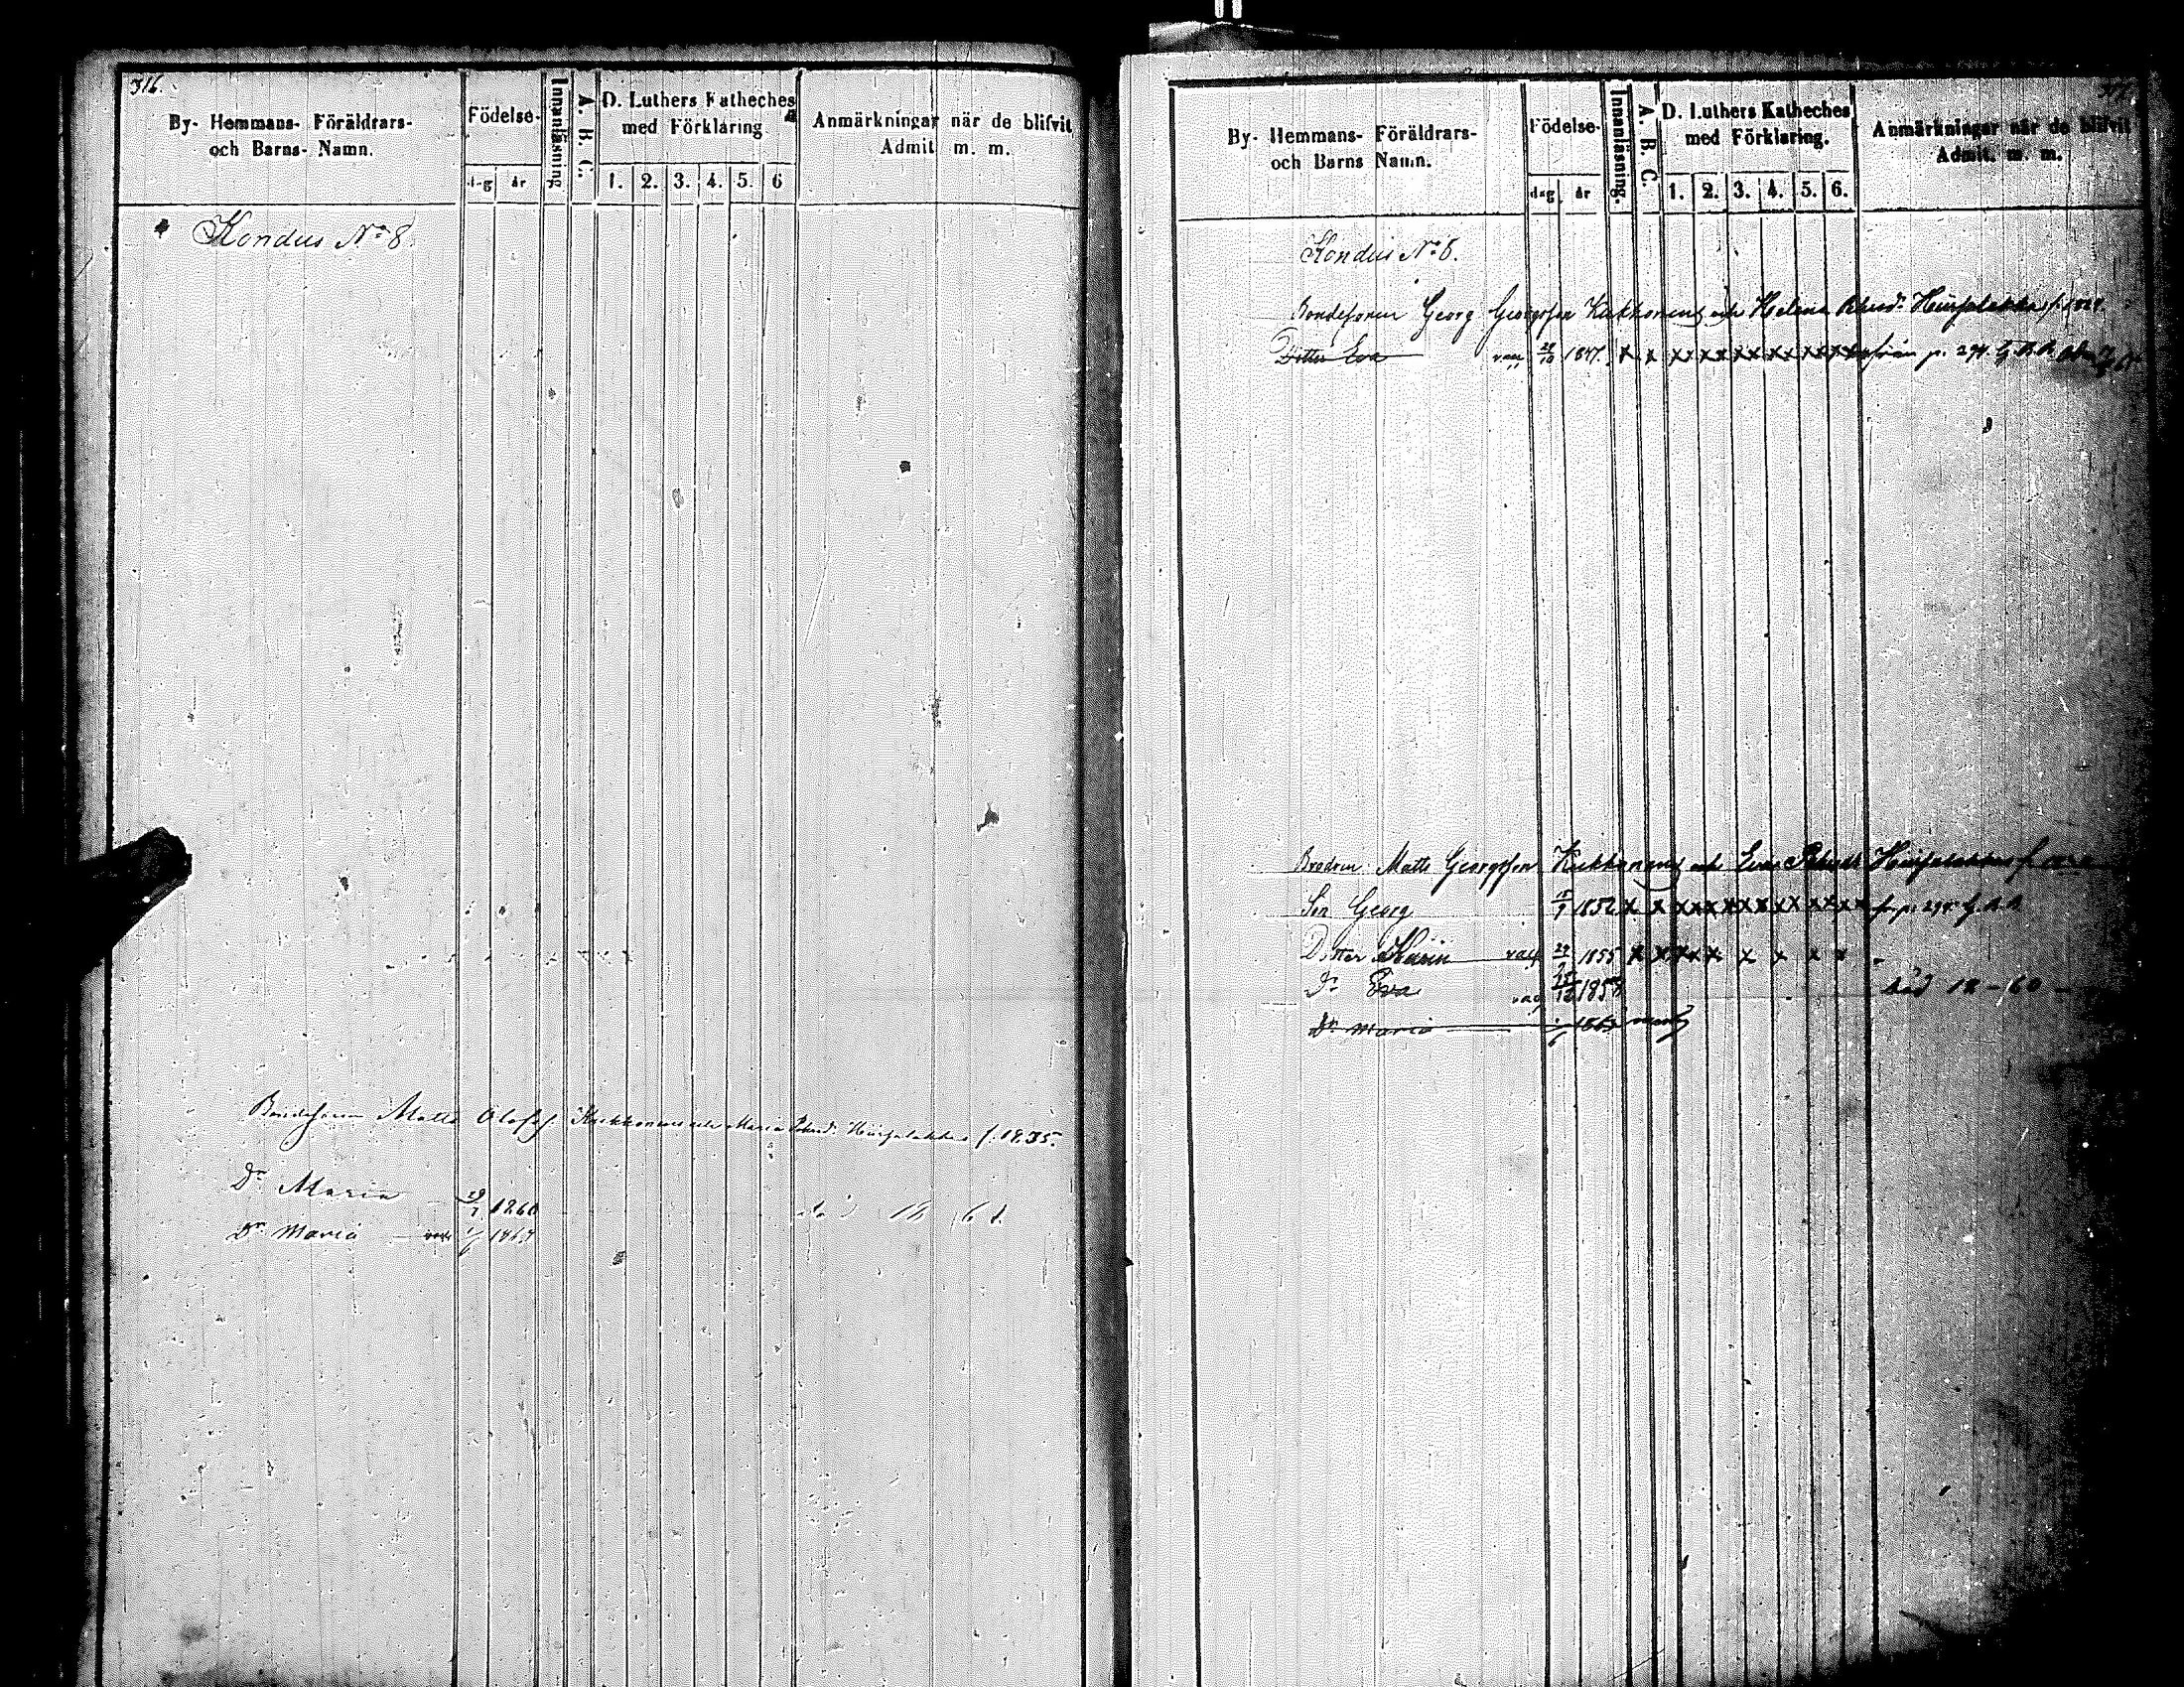 316.
By- Hemmans- Föräldrars-
och Barns- Namn.
Födelse-
dag år
Innanläsning
A. B. C.
D. Luthers Katheches
med Förklaring
1. 2. 3. 4. 5. 6
Anmärkningar när de blifvit
Admit. m. m.
Kondus No 8.
Bondesonen Matts Olofss. Kukkonens och Maria f. 1835.
Dr Maria 29/7 1860 död 12 61.
Dr Maria vacc 1/6 1863
317.
By- Hemmans- Föräldrars-
och Barns Namn.
Födelse-
dag år
Innanläsning.
A. B. C.
D. Luthers Katheches
med Förklaring.
1. 2. 3. 4. 5. 6.
Anmärkningar när de blifvit
Admit. m. m.
Kondus No 8.
Bondesonen Georg Georgsson Kukkonens och Helena
Dotter Eva vacc 28/10 1847. x x x x x x x x x x x x x x från p. 294.
Brodren Matts Georgsson Kukkonens och Eva
Son Georg 1852 x x x x x x x x x x x x x
Dotter vacc 29 1855 x x x x x x x x x
Dr Eva vac 1858 död 12-60
Dr Maria 1863